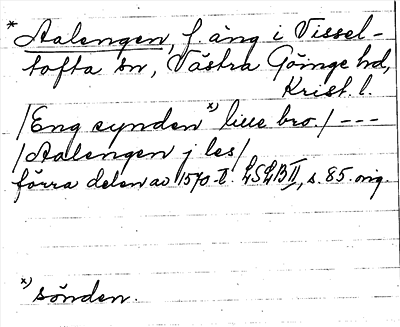 * Aalengen, f. äng i Vissel-
tofta sn, Västra Göinge hd,
Krist. l.
/Eng synden x) liue bro./ ---
/Aalengen j les/
förra delen av 1570-t. LSLB II, s. 85. orig.
x) sönden.